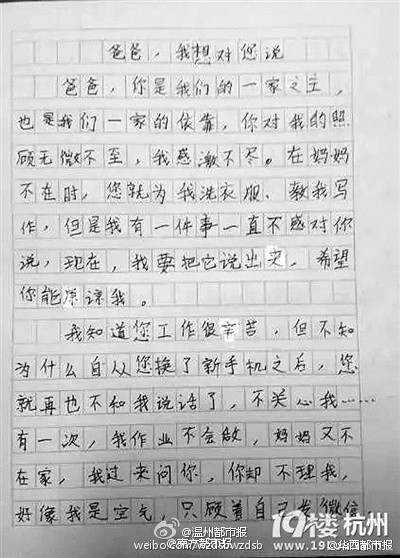 爸爸，我想对您说
爸爸，你是我们的一家之主，
也是我们一家的依靠，你对我的照
顾无微不至，我感激不尽。在妈妈
不在时，您就为我洗衣服、教我写
作，但是我有一件事一直不感对你
说，现在，我要把它说出来，希望
你能原谅我。
我知道您工作很辛苦，但不知
为什么自从您换了新手机之后，您
就再也不和我说话了，不关心我……
有一次，我作业不会做，妈妈又不
在家，我过来问你，你却不理我，
好像我是空气，只顾着自己发微信，
19楼 杭州
@温州都市报
weibo.com/wzdsbwzdsb
@华西都市报